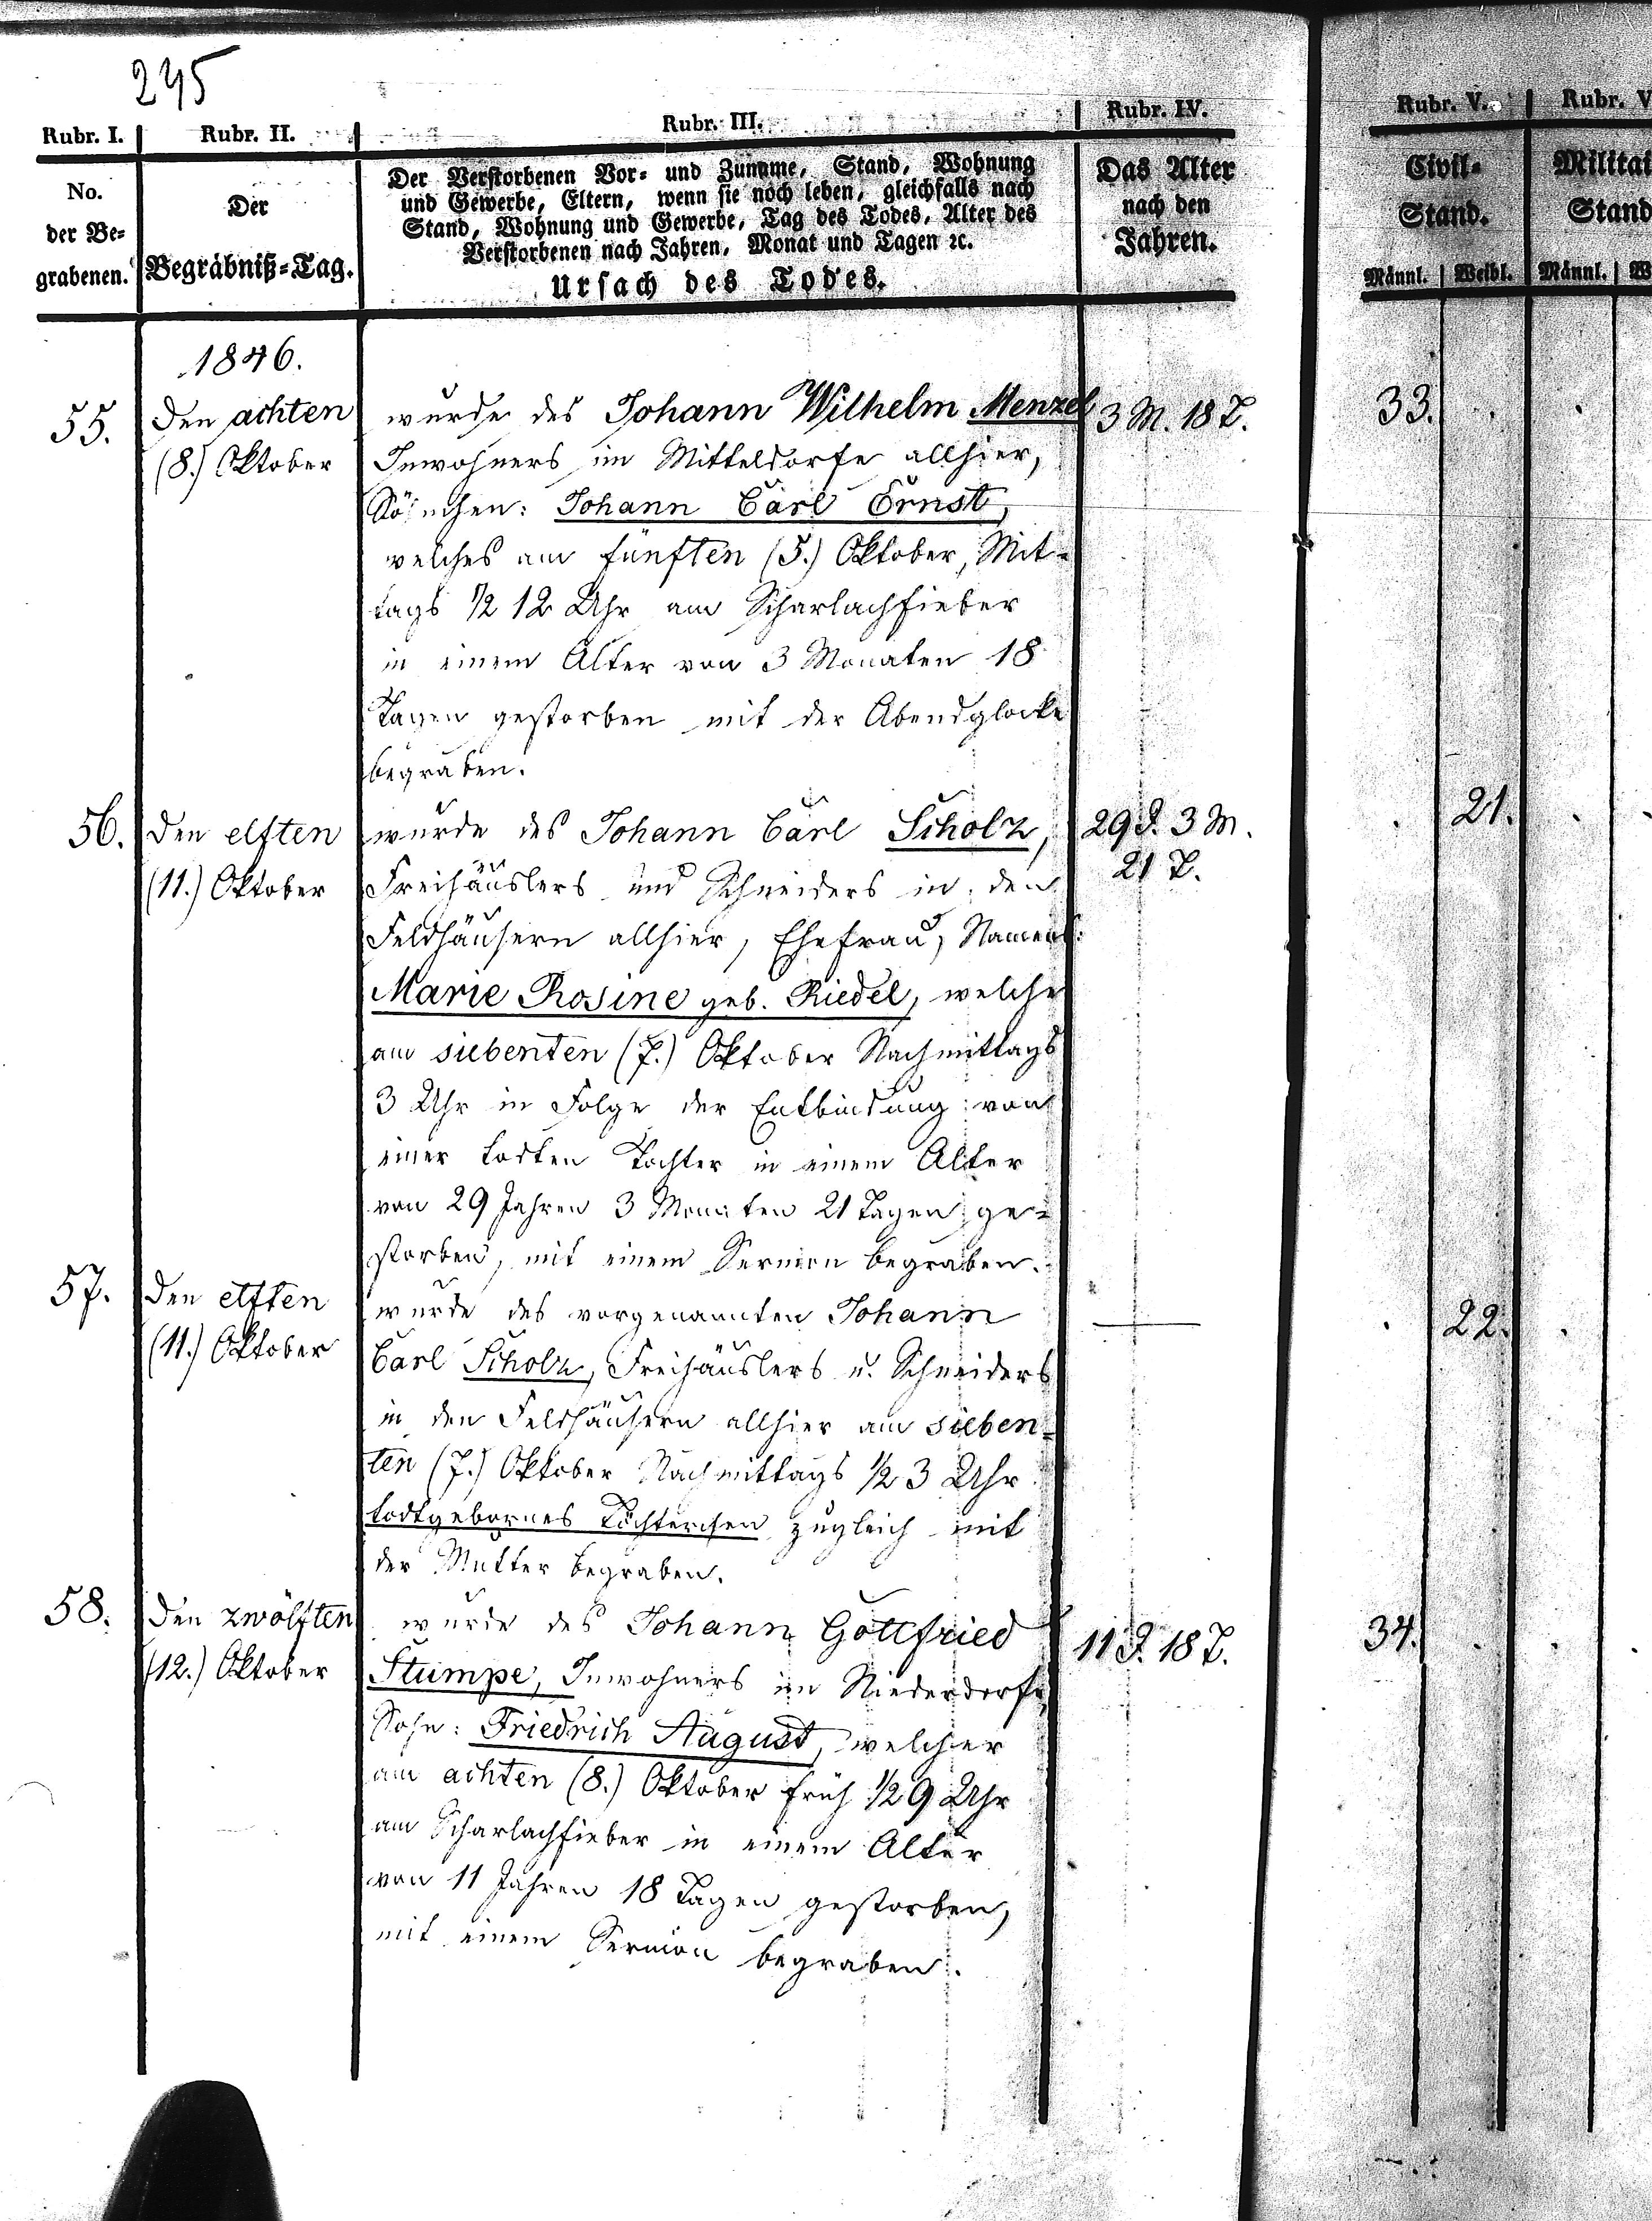 245
Rubr. I.
Rubr. II.
Rubr. III.
Rubr. IV.
Rubr. V.
Rubr. V
No.
der Be-
grabenen.
Der
Begräbniß-Tag.
Der Verstorbenen Vor- und Zuname, Stand, Wohnung
und Gewerbe, Eltern, wenn sie noch leben, gleichfalls nach
Stand, Wohnung und Gewerbe, Tag des Todes, Alter des
Verstorbenen nach Jahren, Monat und Tagen ꝛc.
Ursach des Todes.
Das Alter
nach den
Jahren.
Civil-
Stand.
Männl. Weibl.
Militai
Stand
Männl. W
1846.
55.
den achten
(8.) Oktober
wurde des Johann Wilhelm Menzel
Inwohners im Mitteldorfe allhier,
Söhnchen: Johann Carl Ernst,
welches am fünften (5.) Oktober, Mit-
tags ½ 12 Uhr am Scharlachfieber
in einem Alter von 3 Monaten 18
Tagen gestorben mit der Abendglocke
begraben.
3 M. 18 T.
33.
56.
den elften
(11.) Oktober
wurde des Johann Carl Scholz,
Freihäuslers und Schneiders in den
Feldhäusern allhier, Ehefrau, Namens:
Marie Rosine geb. Riedel, welche
am siebenten (7.) Oktober Nachmittags
3 Uhr in Folge der Entbindung von
einer todten Tochter in einem Alter
von 29 Jahren 3 Monaten 21 Tagen ge-
storben, mit einem Sermon begraben.
29 J. 3 M.
21 T.
21.
57.
den elften
(11.) Oktober
wurde des vorgenannten Johann
Carl Scholz, Freihäuslers u. Schneiders
in den Feldhäusern allhier am sieben-
ten (7.) Oktober Nachmittags ½ 3 Uhr
todtgebornes Töchterchen zugleich mit
der Mutter begraben.
22.
58.
den zwölften
(12.) Oktober
wurde des Johann Gottfried
Stumpe, Inwohners im Niederdorfe
Sohn: Friedrich August, welcher
am achten (8.) Oktober früh ½ 9 Uhr
am Scharlachfieber in einem Alter
von 11 Jahren 18 Tagen gestorben,
mit einem Sermon begraben.
11 J. 18 T.
34.